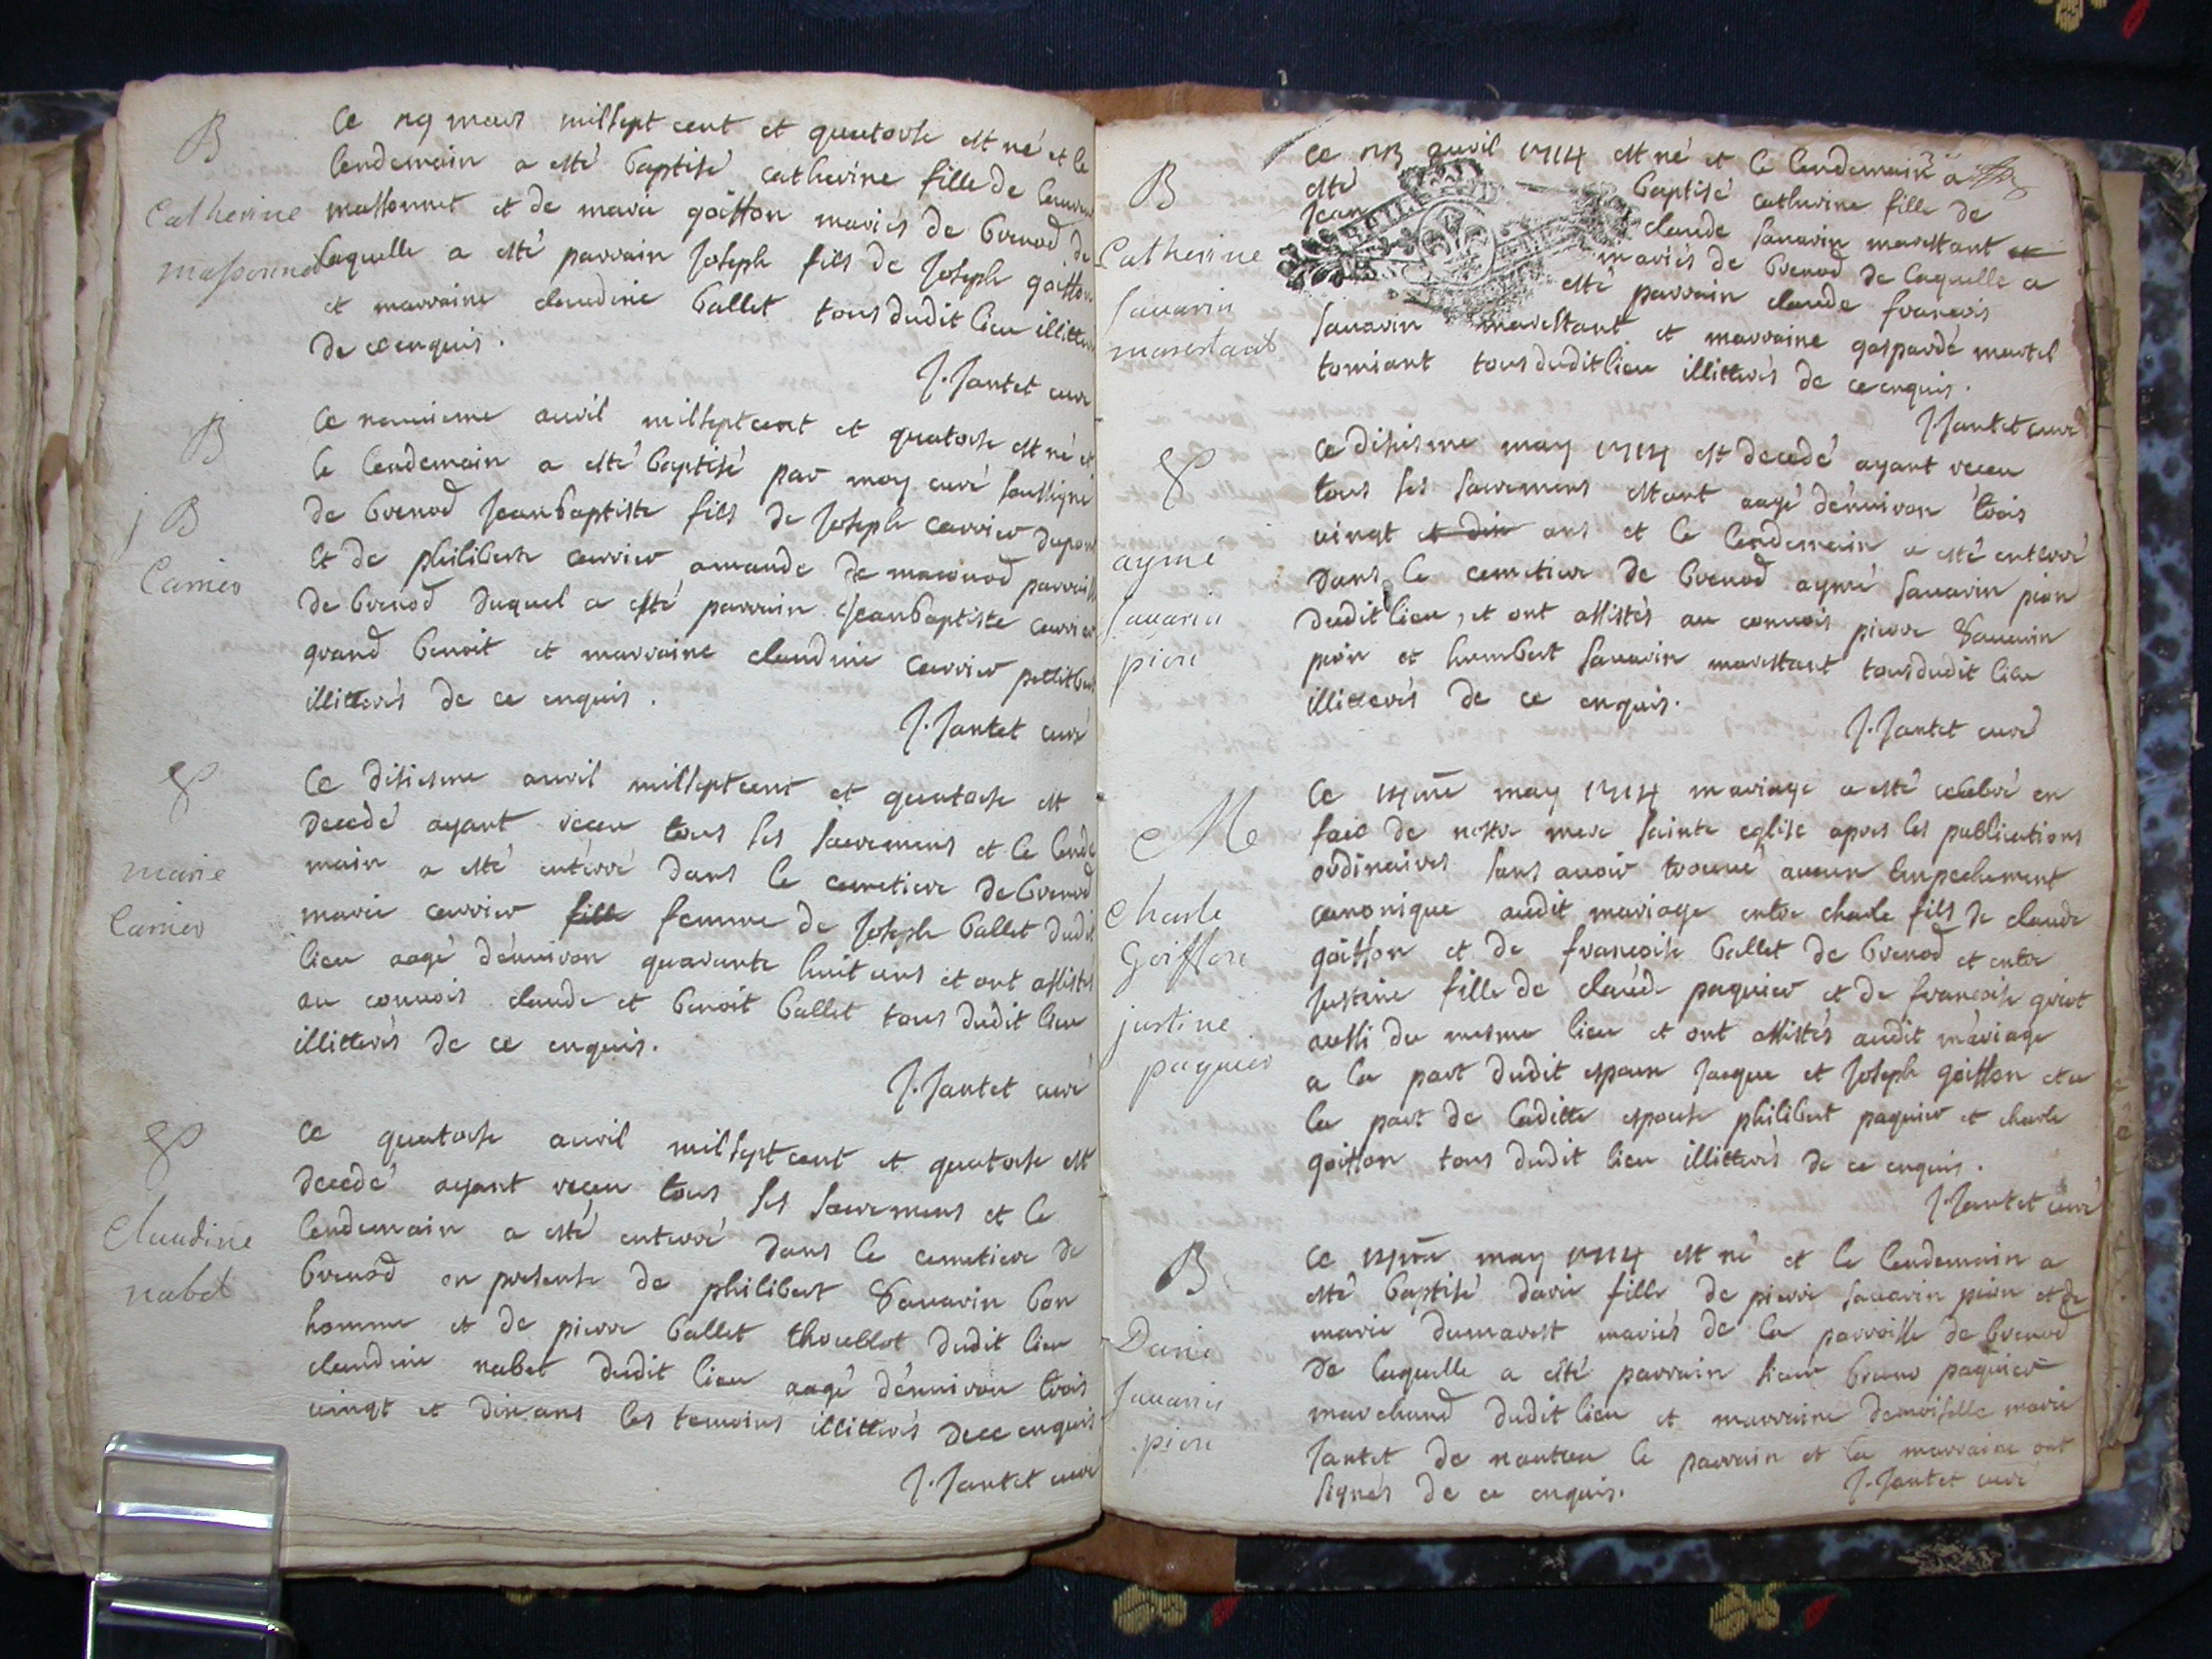 B
Catherine
massonnet
Ce 29 mars millsept cent et quatorse est né et le
lendemain a esté baptisé catherine fille de
massonnet et de marie goisson mariés de brenod de
laquelle a esté parrain Joseph fils de Joseph goisson
et marraine claudine ballet tous dudit lieu illitterés
de ce enquis.
J. Jantet curé
B
J B
Carrier
Ce neuvieme auril millsept cent et quatorse est né et
le lendemain a esté baptisé par moy curé soussigné
de brenod Jeanbaptiste fils de Joseph carrier dupont
et de philiberte carrier amande de macconod parroisse
de brenod duquel a esté parrain Jeanbaptiste carrier
grand benoit et marraine claudine carrier
illitterés de ce enquis.
J. Jantet curé
marie
Carrier
Ce disiesme auril millsept cent et quatorse est
decedé ayant receu tous ses sacremens et le lende
main a esté enterré dans le cemetiere de brenod
marie carrier fille femme de Joseph ballet dudit
lieu aagé d'enuiron quarante huit ans et ont assistés
au conuois claude et benoit ballet tous dudit lieu
illitterés de ce enquis.
J. Jantet curé
Claudine
nabet
Ce quatorse auril millsept cent et quatorse est
decedé ayant receu tous ses sacremens et le
lendemain a esté enterré dans le cemetiere de
brenod en presente de philibert Sauarin bon
homme et de pierre ballet thoublot dudit lieu
claudine nabet dudit lieu aagé d'enuiron trois
uingt et dix ans les temoins illitterés de ce enquis
J. Jantet curé
B
Catherine
Sauarin
marestant
Ce 23 auril 1714 est né et le lendemain a
esté baptisé catherine fille de
Jean claude sauarin marestant et
mariés de brenod de laquelle a
esté parrain claude francois
sauarin marestant et marraine gasparde martel
tomiant tous dudit lieu illitterés de ce enquis.
J. Jantet curé
aymé
Sauarin
pion
Ce disiesme may 1714 est decedé ayant receu
tous ses sacremens estant aagé d'enuiron trois
uingt et dix ans et le lendemain a esté enterré
dans le cemetiere de brenod aymé sauarin pion
dudit lieu, et ont assistés au conuois pierre Sauarin
pion et humbert sauarin marestant tous dudit lieu
illitterés de ce enquis.
J. Jantet curé
M
Charle
Goiffon
justine
paquier
Ce 14me may 1714 mariage a esté celebré en
face de nostre mere sainte eglise apres les publications
ordinaires sans auoir trouué aucun empechement
canonique audit mariage entre charle fils de claude
goisson et de francoise ballet de brenod et entre
Justine fille de claude paquier et de francoise
aussi du mesme lieu et ont assistés audit mariage
a la part dudit espoux Jacque et Joseph goisson et a
la part de laditte espouse philibert paquier et charle
goisson tous dudit lieu illitterés de ce enquis.
J. Jantet curé
B
Darie
Sauarin
pion
Ce 14me may 1714 est né et le lendemain a
esté baptisé darie fille de pierre sauarin pion et de
marie dumarest mariés de la parroisse de brenod
de laquelle a esté parrain sieur bruno paquier
marchand dudit lieu et marraine demoiselle marie
Jantet de nantua le parrain et la marraine ont
signés de ce enquis.
J. Jantet curé